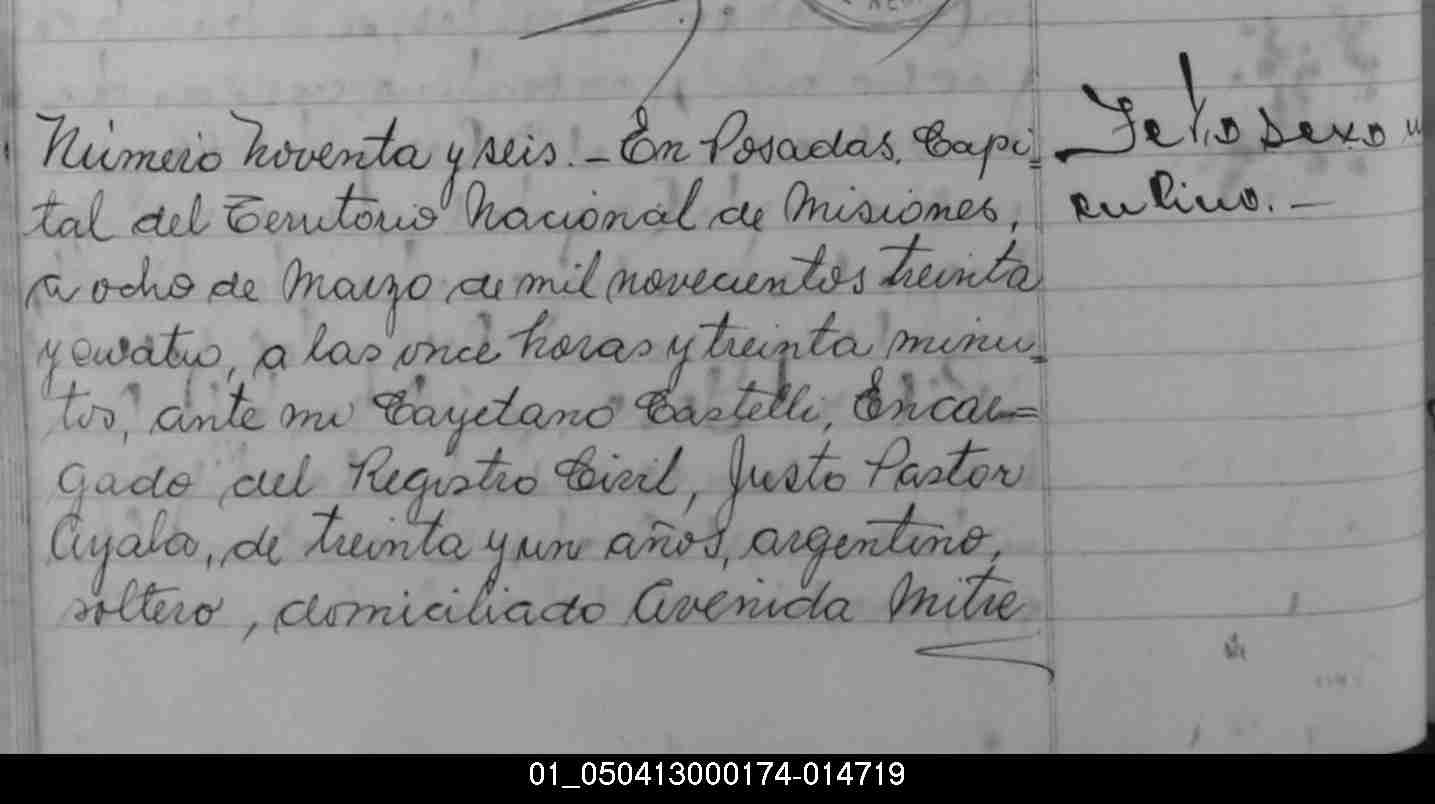 Número Noventa y seis.- En Posadas, Capi-
tal del Territorio Nacional de Misiones,
a ocho de Marzo de mil novecientos treinta
y cuatro, a las once horas y treinta minu-
tos, ante mi Cayetano Castelli, Encar=
gado del Registro Civil, Justo Pastor
Ayala, de treinta y un años, argentino,
soltero, domiciliado Avenida Mitre
Feto sexo
01_050413000174-014719